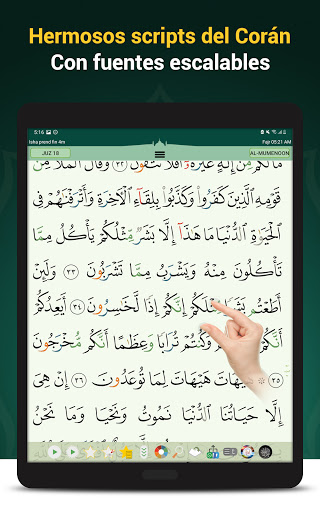 Hermosos scripts del Corán
Con fuentes escalables
5:16
Iska prend fin 4m
Fajr 05:21 AM
JUZ 18
AL-MUMENOON
مَالَكُم مِّنْ إِلَٰهٍ غَيْرُهُۥٓ أَفَلَا تَتَّقُونَ ٣٢ وَقَالَ ٱلْمَلَأُ مِن
قَوْمِهِ ٱلَّذِينَ كَفَرُوا۟ وَكَذَّبُوا۟ بِلِقَآءِ ٱلْأَخِرَةِ وَأَتْرَفْنَٰهُمْ فِى
ٱلْحَيَوٰةِ ٱلدُّنْيَا مَا هَٰذَآ إِلَّا بَشَرٌ مِّثْلُكُمْ يَأْكُلُ مِمَّا
تَأْكُلُونَ مِنْهُ وَيَشْرَبُ مِمَّا تَشْرَبُونَ ٣٣ وَلَئِنْ
أَطَعْتُم بَشَرًا مِّثْلَكُمْ إِنَّكُمْ إِذًا لَّخَٰسِرُونَ ٣٤ أَيَعِدُكُمْ
أَنَّكُمْ وَكُنتُمْ تُرَابًا وَعِظَٰمًا أَنَّكُم مُّخْرَجُونَ
٣٥ هَيْهَاتَ هَيْهَاتَ لِمَا تُوعَدُونَ ٣٦ إِنْ هِىَ
إِلَّا حَيَاتُنَا ٱلدُّنْيَا نَمُوتُ وَنَحْيَا وَمَا نَحْنُ